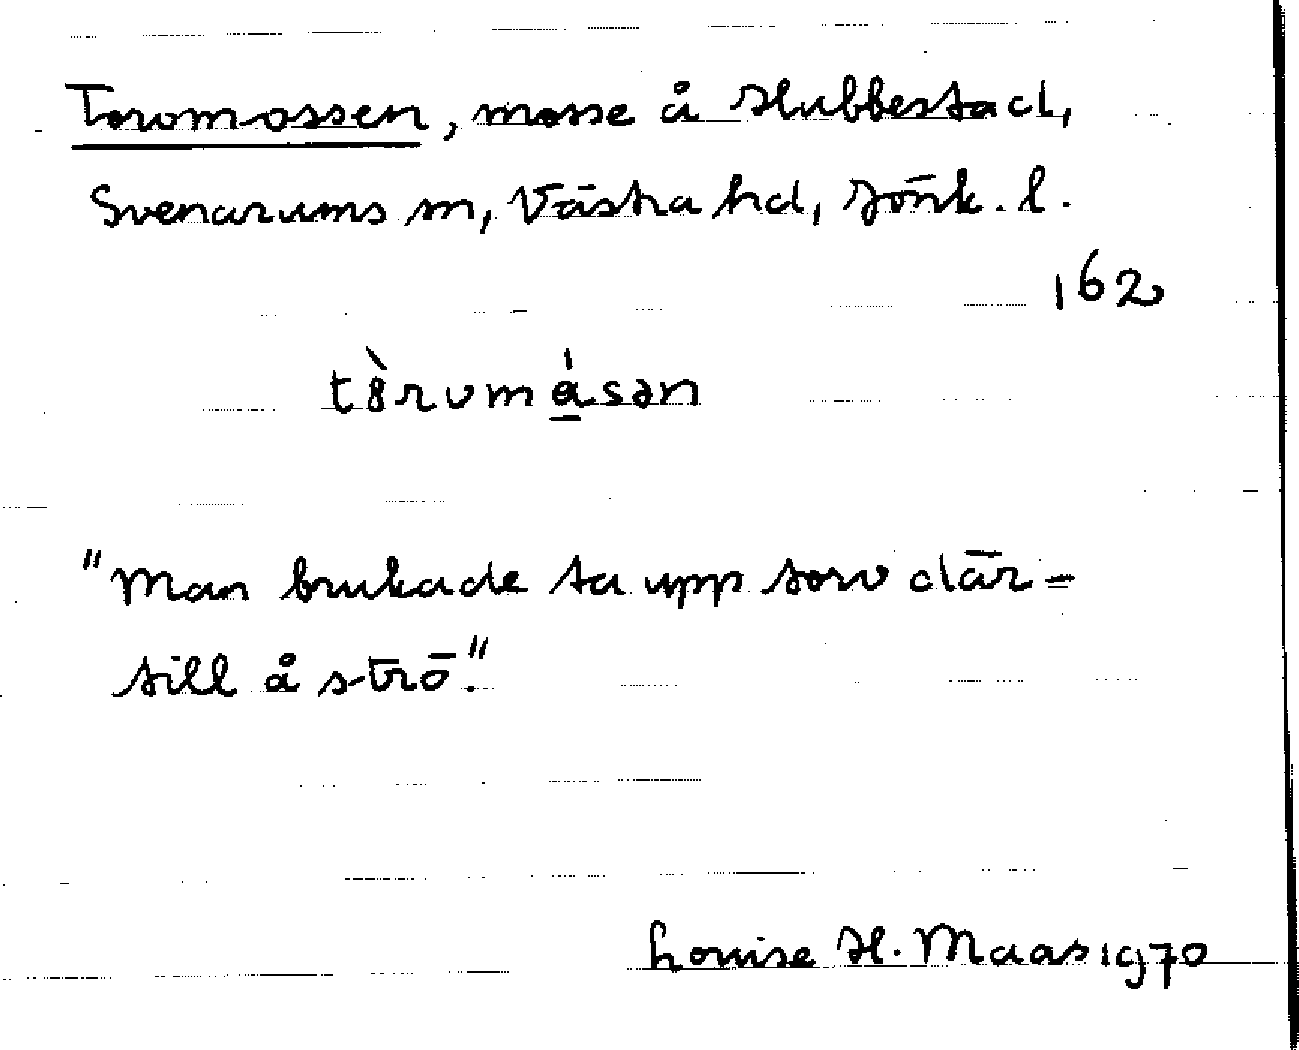 Torvmossen, mosse å Hubbestad,
Svenarums sn, Västra hd, Jönk. l.
162
tòrvmásən
"Man brukade ta upp torv där-
till å strö."
Louise H. Maas 1970